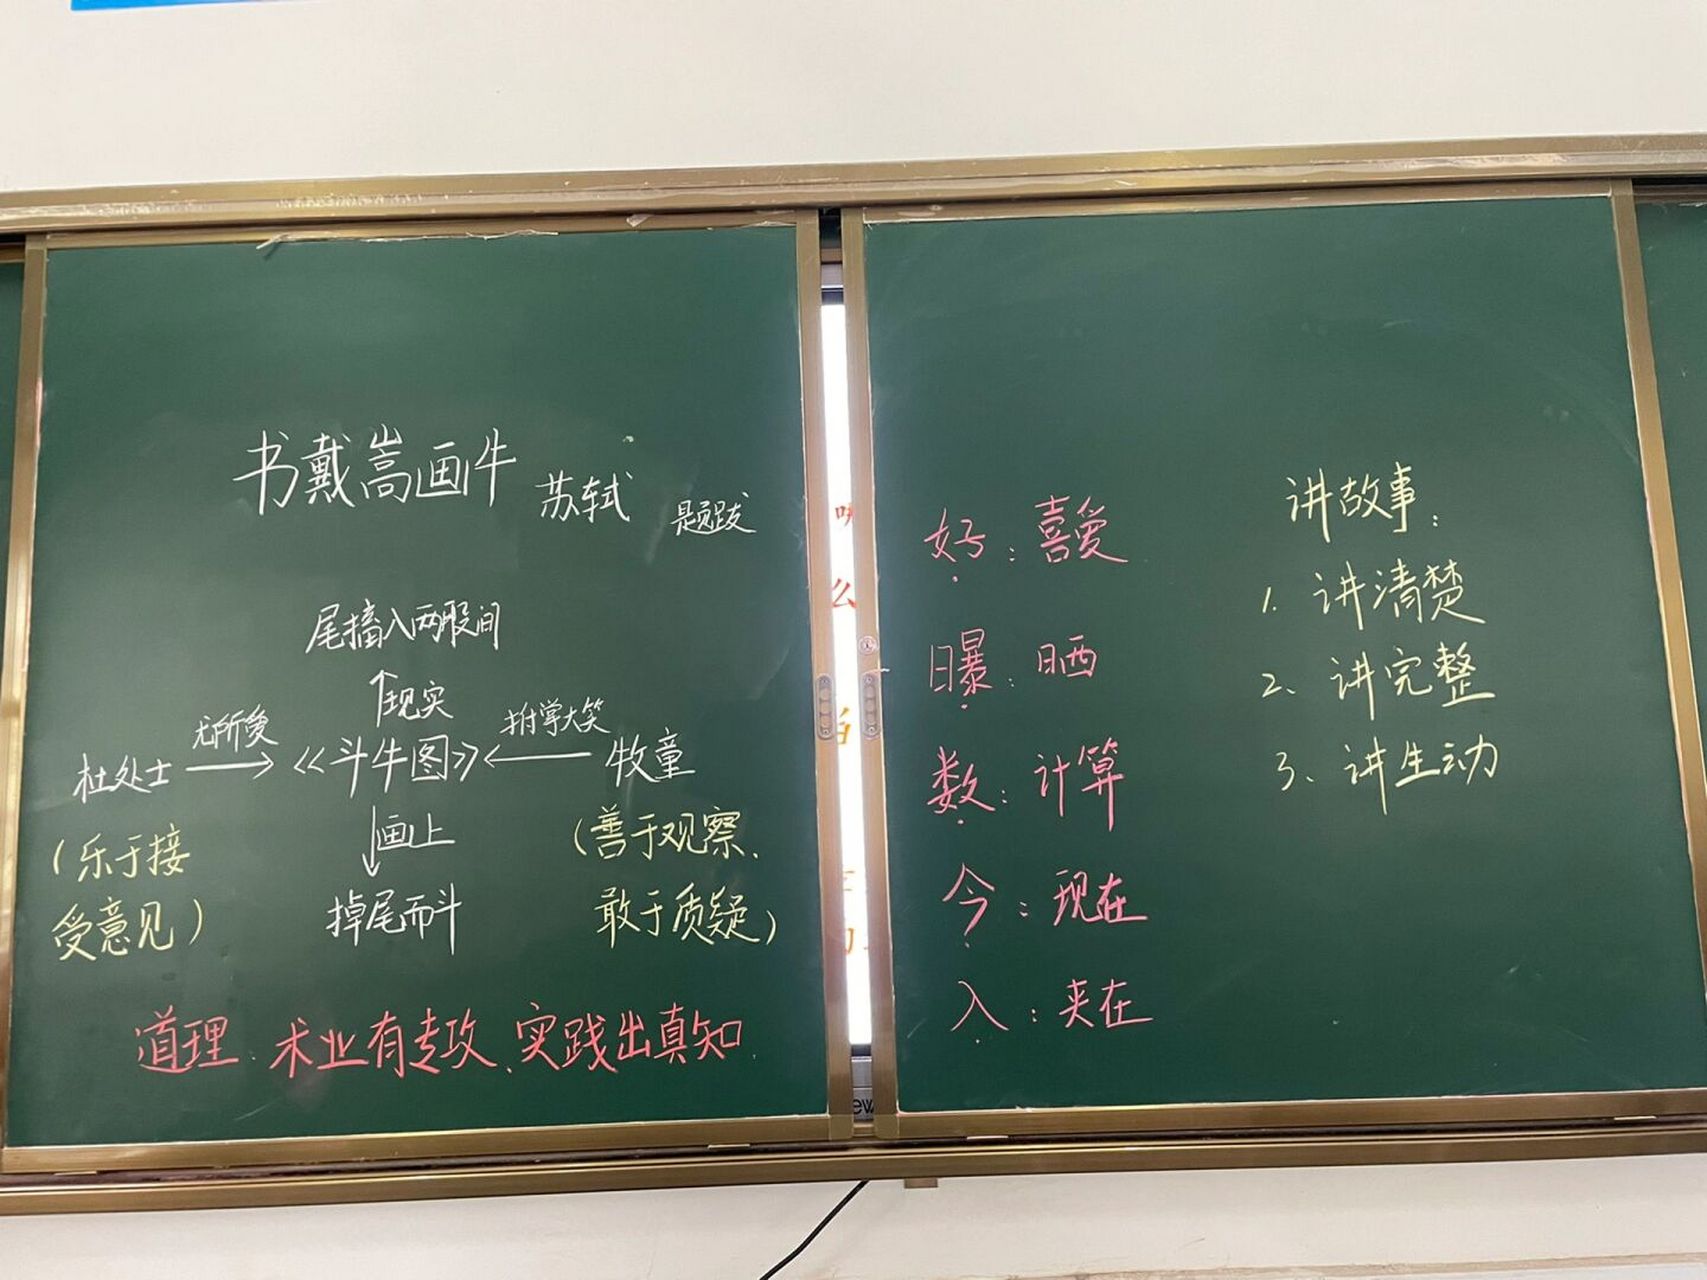 书戴嵩画牛 苏轼 题跋
尾搐入两股间
现实
尤所爱
拊掌大笑
杜处士
《斗牛图》
牧童
画上
掉尾而斗
(乐于接
受意见)
(善于观察、
敢于质疑)
道理 术业有专攻、实践出真知
好：喜爱
曝：晒
数：计算
今：现在
入：夹在
讲故事：
1. 讲清楚
2、讲完整
3、讲生动
么